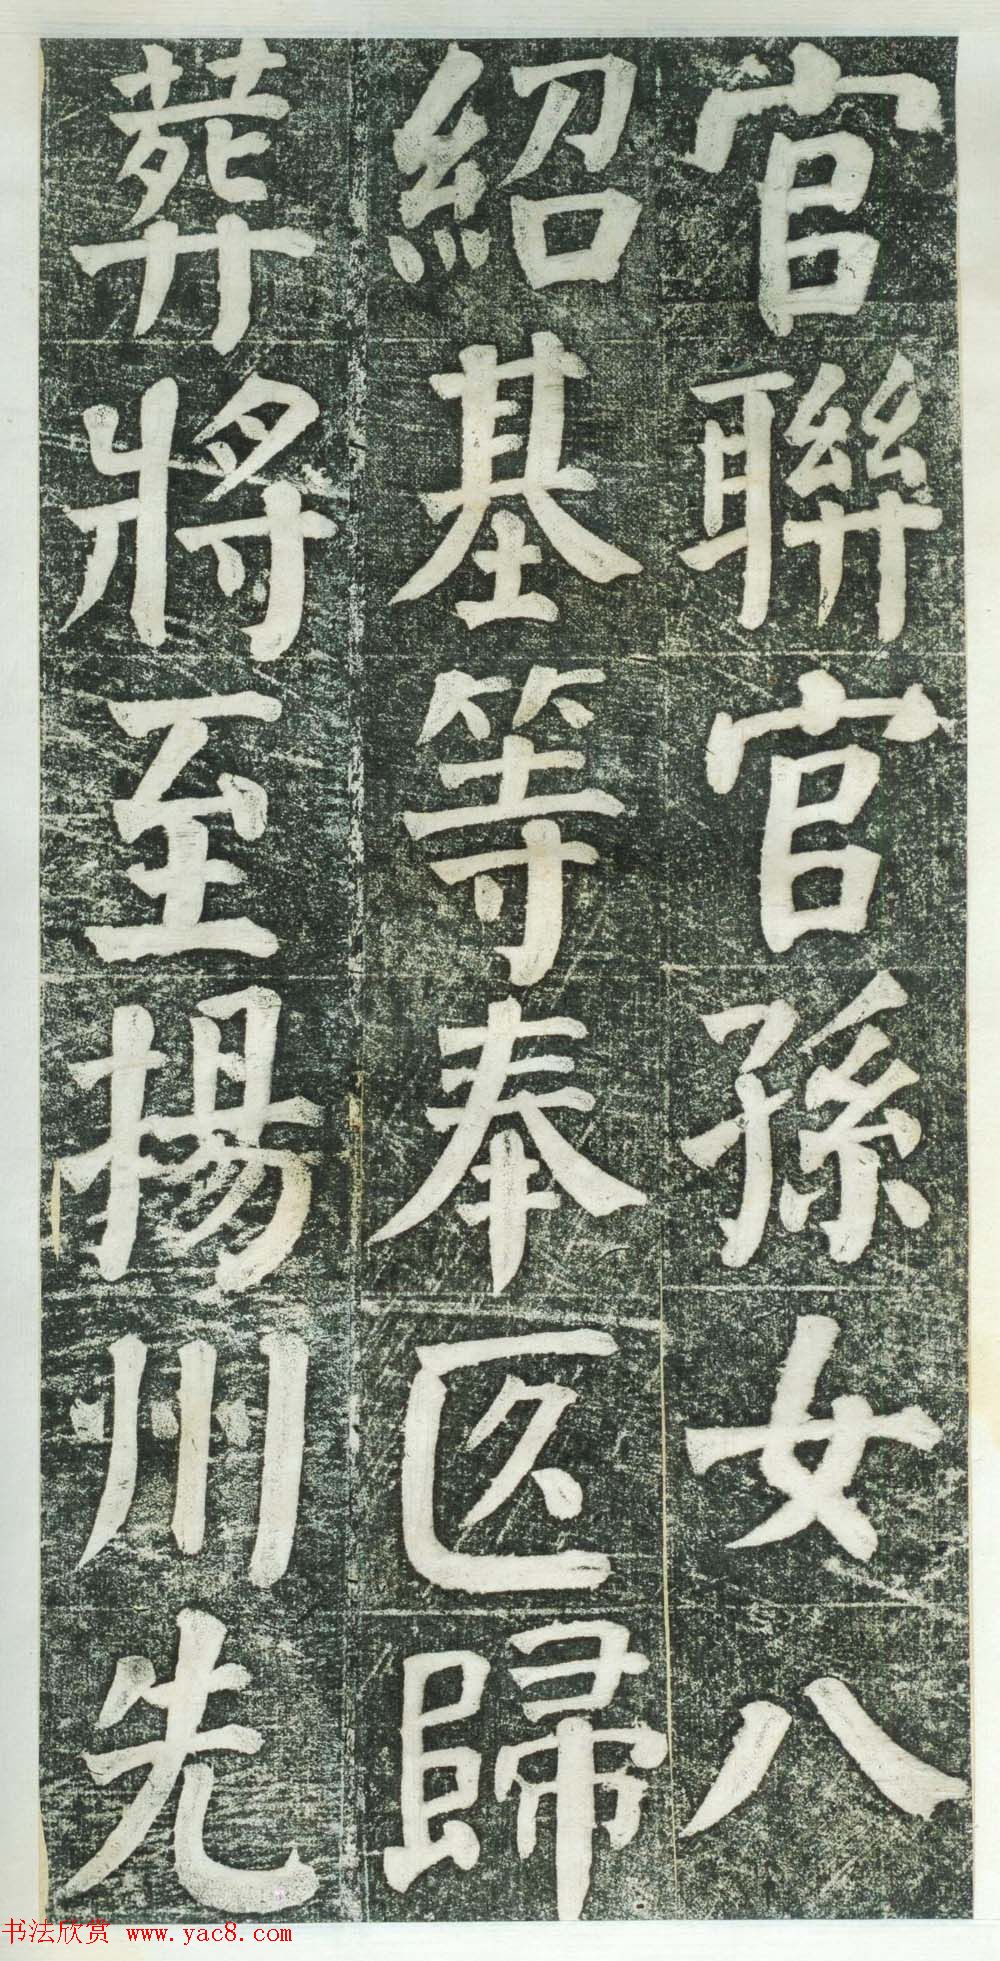 官聯官孫女八
紹基等奉匛歸
葬將至揚川先
书法欣赏 www.yac8.com